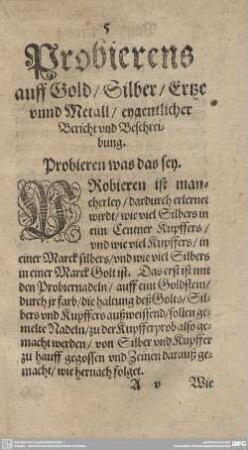 5
Probierens
auff Gold/ Silber/ Ertze
vnnd Metall/ eygentlicher
Bericht vnd Beschrei-
bung.
Probieren was das sey.
PRobieren ist man-
cherley/ dardurch erlernet
wirdt/ wie viel Silbers in
eim Centner Kupffers/
vnd wie viel Kupffers/ in
einer Marck silbers/ vnd wie viel Silbers
in einer Marck Golt ist. Das erst ist mit
den Probiernadeln/ auff eim Goldstein/
durch jr farb/ die haltung deß Golts/ Sil-
bers vnd Kupffers außweissend/ sollen ge-
melte Nadeln/ zu der Kupfferprob also ge-
macht werden/ von Silber vnd Kupffer
zu hauff gegossen vnd Zeinen darauß ge-
macht/ wie hernach folget.
A v Wie